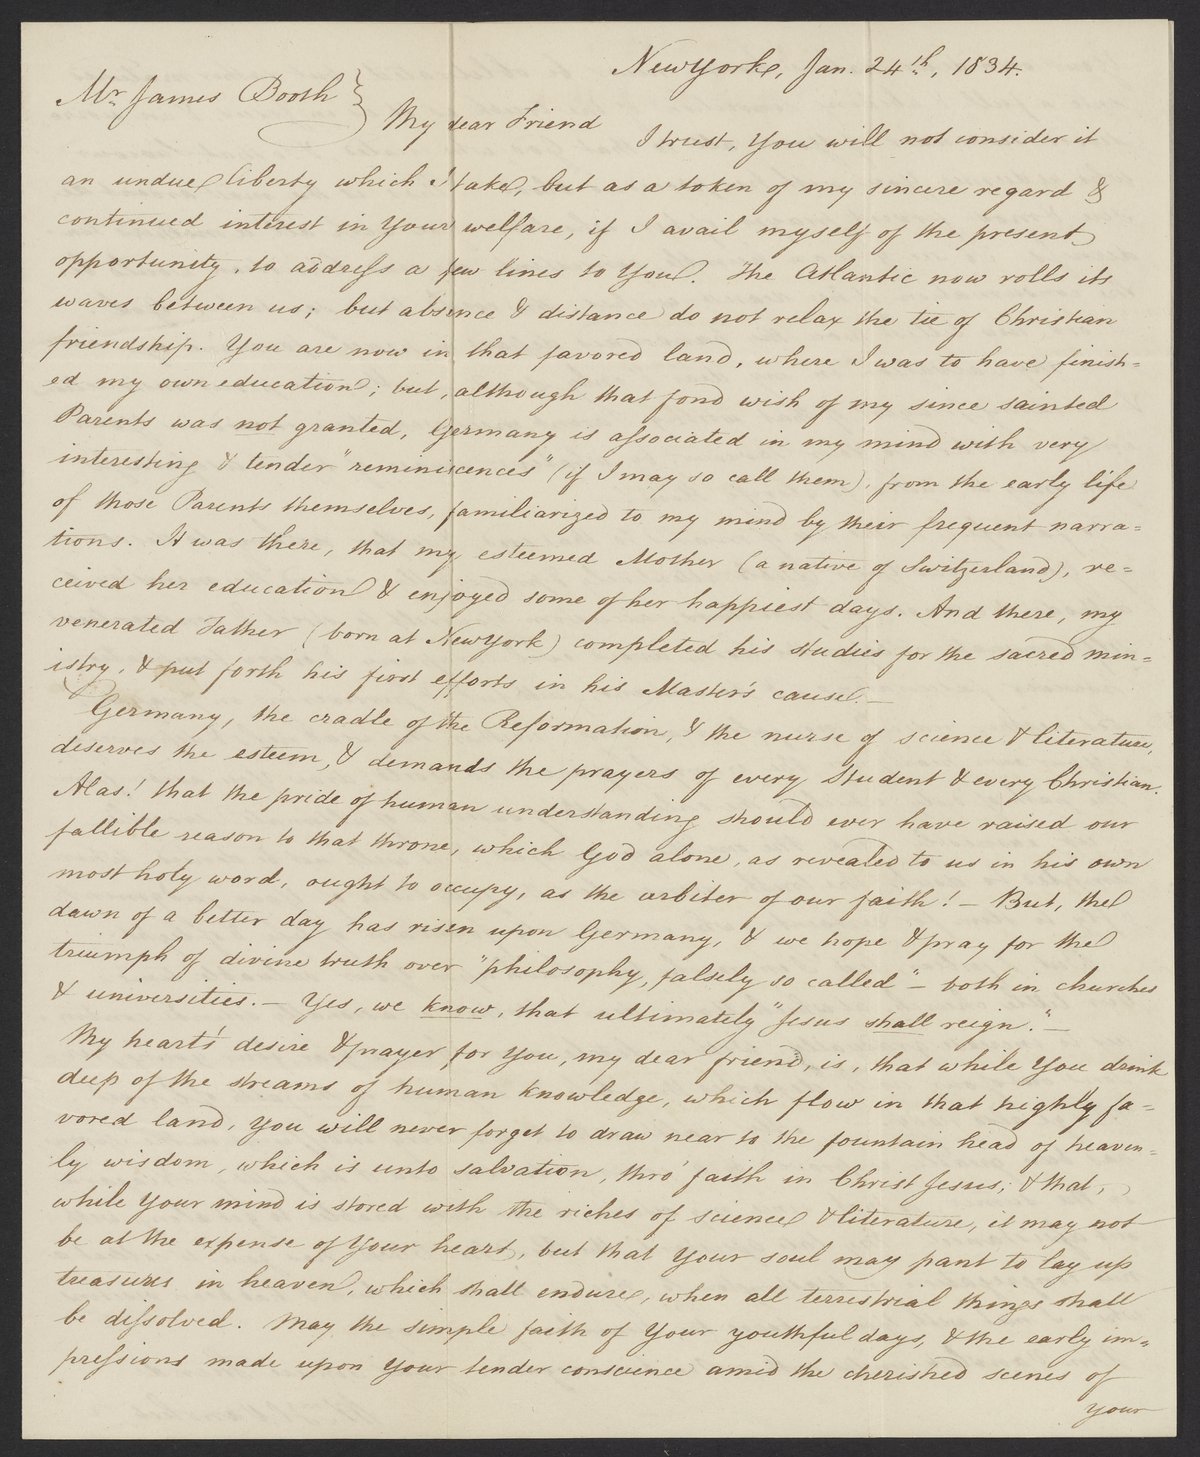 New York, Jan. 24th, 1834.
Mr James Booth }
My dear Friend
I trust, you will not consider it
an undue liberty which I take, but as a token of my sincere regard &
continued interest in your welfare, if I avail myself of the present
opportunity, to address a few lines to you. The Atlantic now rolls its
waves between us; but absence & distance do not relax the tie of Christian
friendship. You are now in that favored land, where I was to have finish=
ed my own education; but, although that fond wish of my since sainted
Parents was not granted, Germany is associated in my mind with very
interesting & tender "reminiscences" (if I may so call them), from the early life
of those Parents themselves, familiarized to my mind by their frequent narra=
tions. It was there, that my esteemed Mother (a native of Switzerland), re=
ceived her education & enjoyed some of her happiest days. And there, my
venerated Father (born at New York) completed his studies for the sacred min=
istry, & put forth his first efforts in his Master's cause. —
Germany, the cradle of the Reformation, & the nurse of science & literature,
deserves the esteem, & demands the prayers of every Student & every Christian.
Alas! that the pride of human understanding should ever have raised our
fallible reason to that throne, which God alone, as revealed to us in his own
most holy word, ought to occupy, as the arbiter of our faith! — But, the
dawn of a better day has risen upon Germany, & we hope & pray for the
triumph of divine truth over "philosophy, falsely so called" — both in churches
& universities. — Yes, we know, that ultimately "Jesus shall reign." —
My heart's desire & prayer for you, my dear friend, is, that while you drink
deep of the streams of human knowledge, which flow in that highly fa=
vored land, you will never forget to draw near to the fountain head of heaven=
ly wisdom, which is unto salvation, thro' faith in Christ Jesus; & that,
while your mind is stored with the riches of science & literature, it may not
be at the expense of your heart, but that your soul may pant to lay up
treasures in heaven, which shall endure, when all terrestrial things shall
be dissolved. May the simple faith of your youthful days, & the early im=
pressions made upon your tender conscience amid the cherished scenes of
your